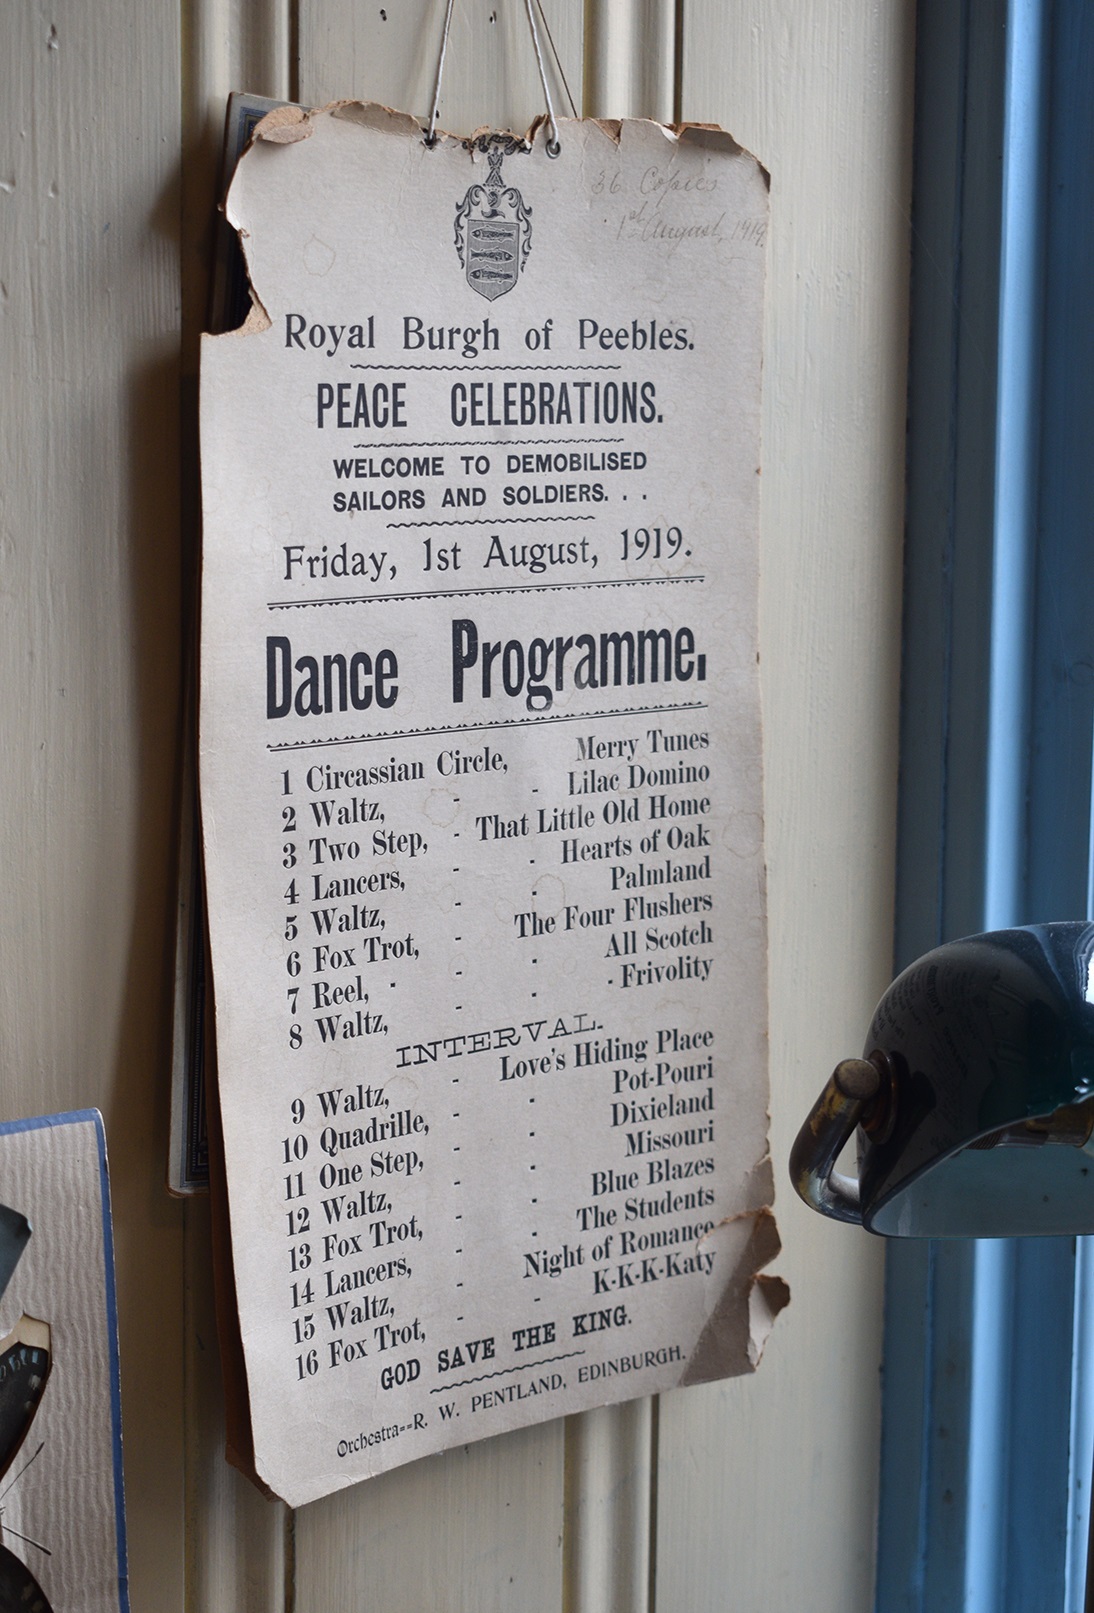 36 Copies
1st August, 1919.
Royal Burgh of Peebles.
PEACE CELEBRATIONS.
WELCOME TO DEMOBILISED
SAILORS AND SOLDIERS. . .
Friday, 1st August, 1919.
Dance Programme.
1 Circassian Circle, Merry Tunes
2 Waltz, - - Lilac Domino
3 Two Step, - That Little Old Home
4 Lancers, - - Hearts of Oak
5 Waltz, - - Palmland
6 Fox Trot, - The Four Flushers
7 Reel, - - - All Scotch
8 Waltz, - - - Frivolity
INTERVAL.
9 Waltz, - Love's Hiding Place
10 Quadrille, - - Pot-Pouri
11 One Step, - - Dixieland
12 Waltz, - - Missouri
13 Fox Trot, - - Blue Blazes
14 Lancers, - - The Students
15 Waltz, - Night of Romance
16 Fox Trot, - - K-K-K-Katy
GOD SAVE THE KING.
Orchestra--R. W. PENTLAND, EDINBURGH.